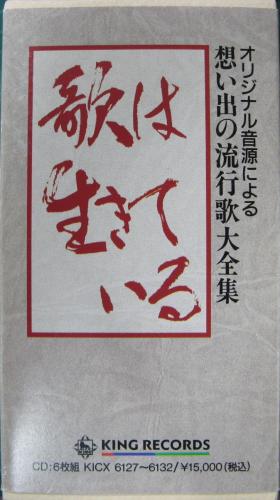 オリジナル音源による
想い出の流行歌大全集
歌は
生きて
いる
KING RECORDS
CD:6枚組 KICX 6127〜6132/¥15,000(税込)